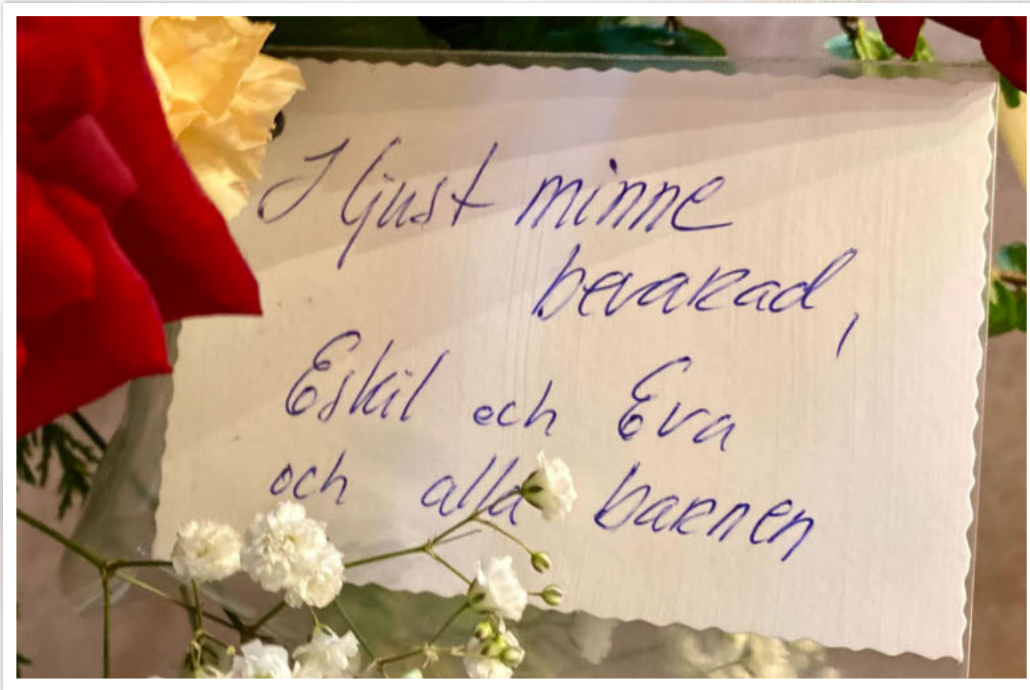 I ljust minne
bevarad,
Eskil och Eva
och alla barnen